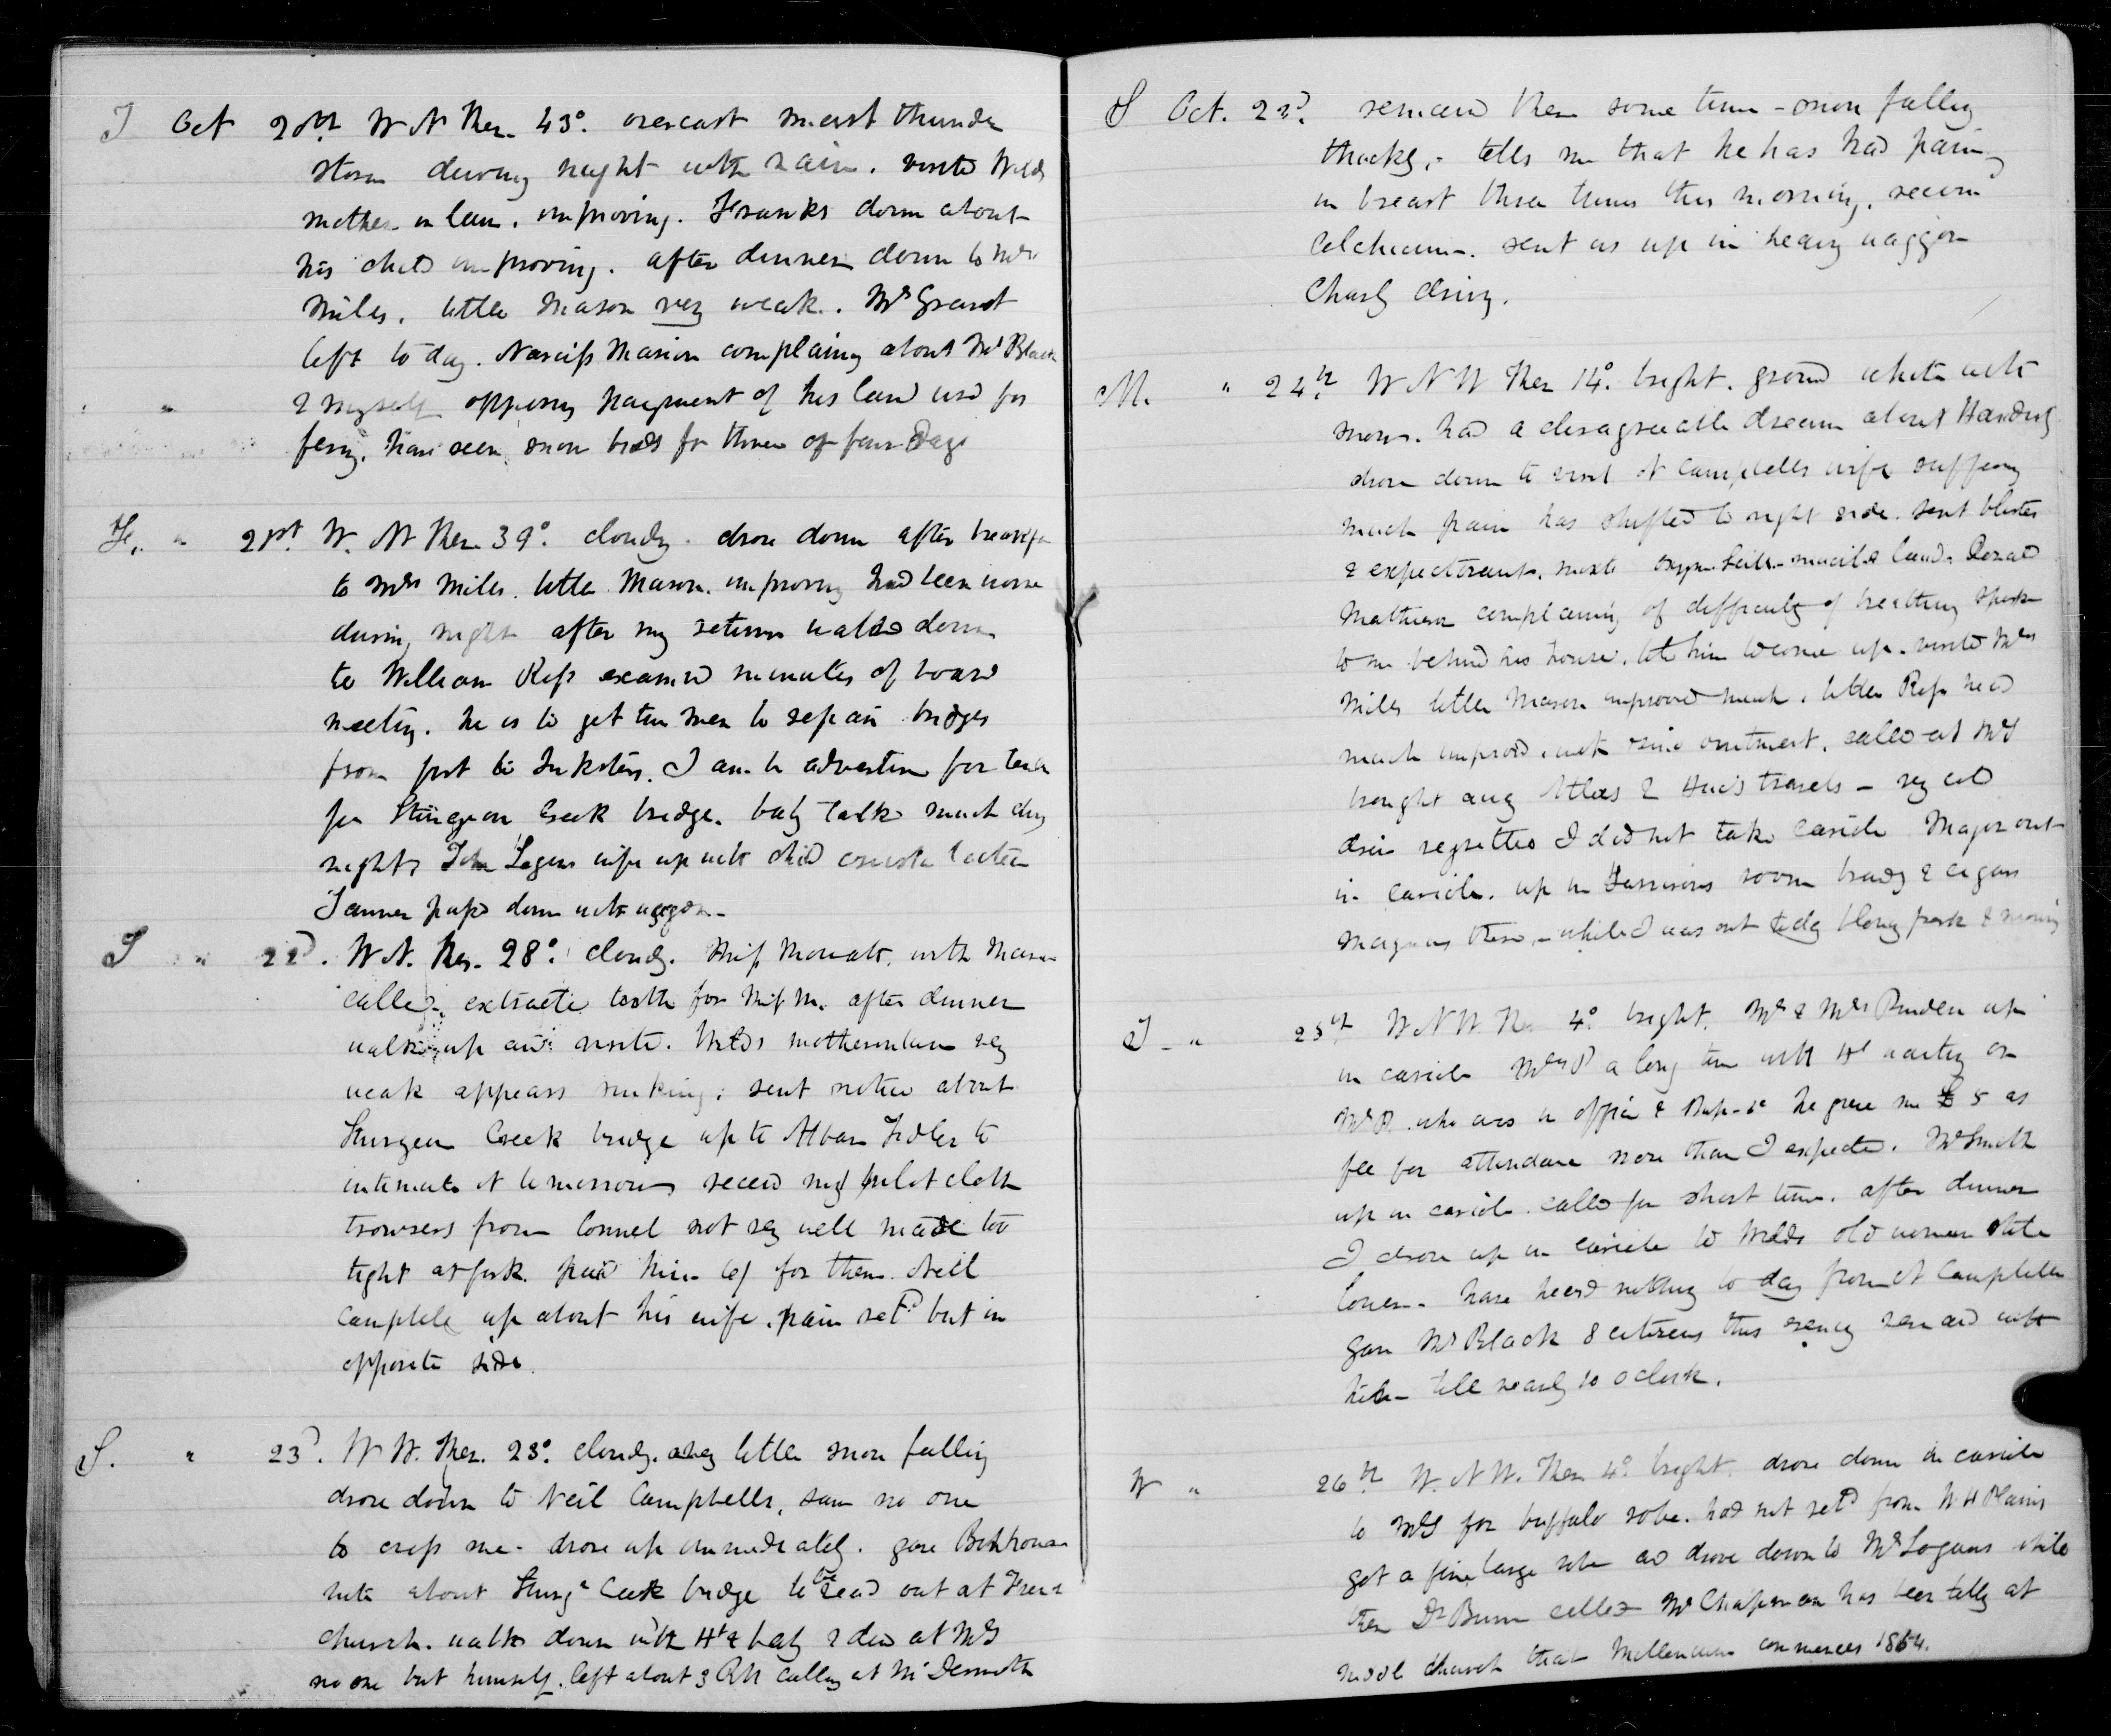 T Oct 20th W N Ther. 43°. overcast moist thunder
storm during night with rain. visited Wilds
mother in law. improving. Franks down about
his child improving. after dinner down to Mrs
Miles. little Mason very weak. Mr Grant
left to day. Narciss Marion complaining about Mr Black
" & myself opposing payment of his land used for
ferry. have seen snow birds for three or four Days
Fr. " 21st. W. N Ther. 39°. cloudy. drove down after breakfa
to Mrs Miles. little Mason. improving had been worse
during night after my return walked down
to William Ross examined minutes of board
meeting. he is to get two men to repair bridges
from fort to Inksters. I am to advertise for
for Sturgeon Creek bridge. baby talks much
night John Logans wife up with child crusta lactea
Tanner passed down with waggon
S " 22d. W N. Ther. 28°. cloudy. Miss Mowatt. with Mason
called. extracted tooth for Miss M. after dinner
walked up and visited. Wilds motherinlaw very
weak appears sinking. sent notice about
Sturgeon Creek bridge up to Alban Fidler to
intimate it tomorrow received my pilot cloth
trowsers from Connel not very well made too
tight at fork. paid him 6/ for them. Neil
Campbell up about his wife. pain retd but in
opposite side.
S. " 23d. W W. Ther. 23°. cloudy. very little snow falling
drove down to Neil Campbells, saw no one
to cross me. drove up immediately. gave
note about Sturgn Creek bridge to be read out at
church. walked down with Ht & baby & dined at McD
no one but himself. left about 3 PM calling at McDermotts
S Oct. 23d. remained there some time - snow falling
thickly. tells me that he has had pain
in breast three times this morning.
Colchicum. sent us up in heavy waggon
Charly driving.
M. " 24th W N W Ther 14°. bright. ground white with
snow. had a disagreeable dream about
drove down to visit N Campbells wife suffering
much pain has shifted to right side. sent blister
& expectorant. Donald
Matheson complaining of difficulty of breathing spoke
to me behind his house. told him to come up. visited Mrs
Miles little Mason improved much. little Ross head
much improved with zinc ointment. called at McD
brought away Atlas & Huc's travels - very cold
drive regretted I did not take cariole Major out
in cariole. up in Harrisons room brandy & cigars
Magnus there, - while I was out today
T - " 25th W N W Ther 4°. bright. Mr & Mrs Pruden up
in cariole Mrs P a long time with Ht waiting on
Mr P. who was in office & he gave me £5 as
fee for attendance more than I expected. Mr Smith
up in cariole called for short time. after dinner
I drove up in cariole to Wilds old woman state
lower. have heard nothing to day from N Campbells
gave Mr Black 8 this evening remained with
him till nearly 10 oclock.
W " 26th W. N W. Ther 4°. bright. drove down in cariole
to McD for buffalo robe. had not retd from W H Plains
got a fine large robe and drove down to Mr Logans while
there Dr Bunn called Mr Chapman has been telling at
middle church that Millennium commences 1864.